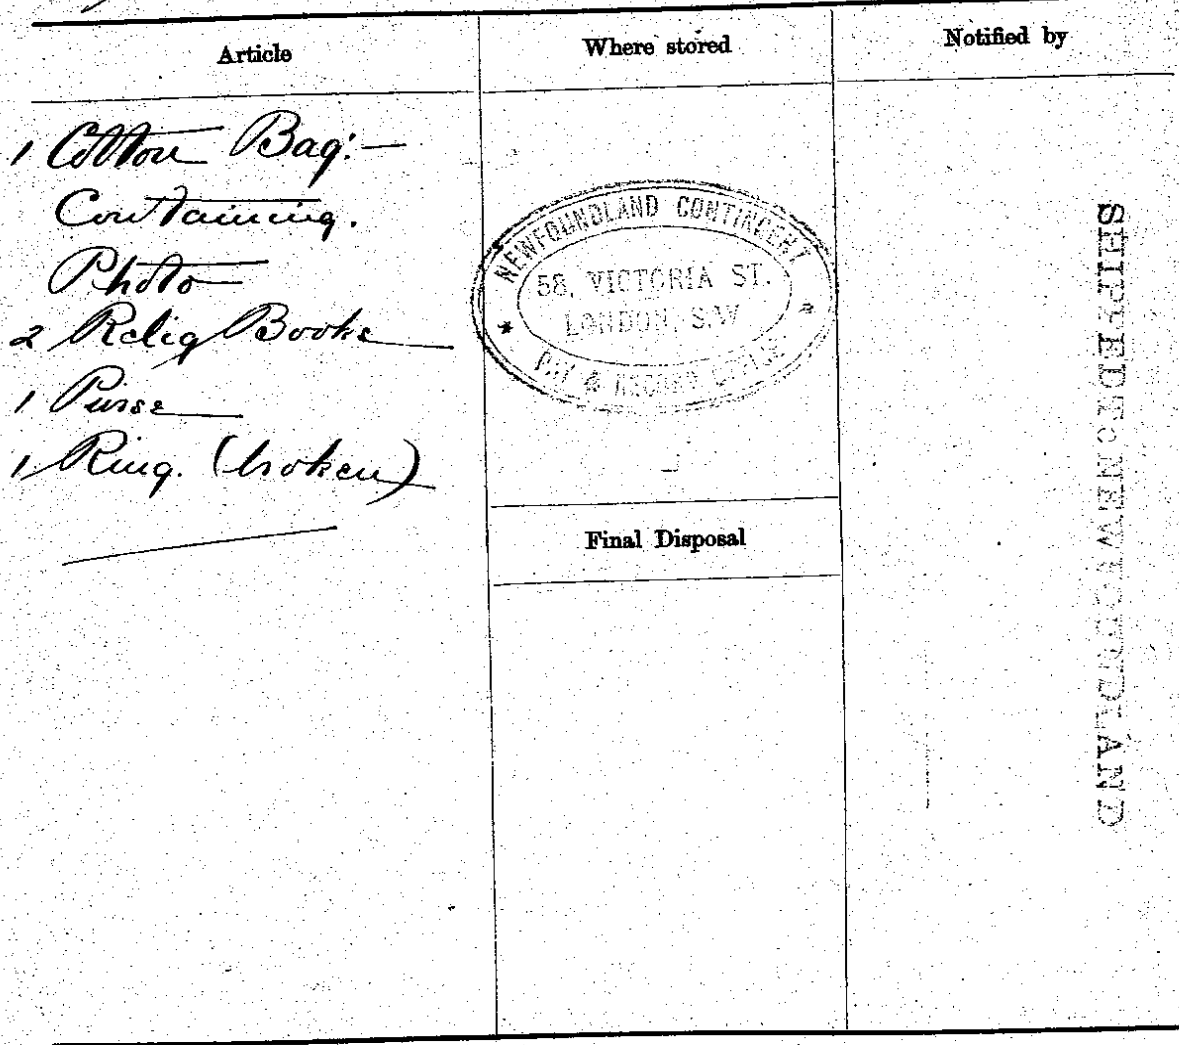 Article
Where stored
Notified by
1 Cotton Bag:—
Containing.
Photo
2 Relig Books
1 Purse
1 Ring. (broken)
NEWFOUNDLAND CONTINGENT
58, VICTORIA ST.
LONDON, S.W
PAY & RECORD OFFICE
Final Disposal
SHIPPED TO NEWFOUNDLAND